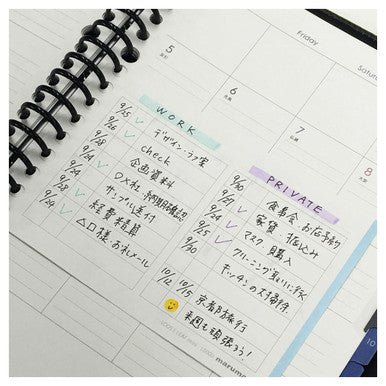 Friday
Saturday
5
先勝
6
友引
7
先負
8
仏滅
WORK
9/25 ✓ デザイン・ラフ案
9/26 ✓ check
9/28 ✓ 企画資料
9/24 ✓ ○×社 納期確認
9/24 ✓ サンプル送付
9/28 ✓ 経費精算
9/24 ✓ △□様 お礼メール
PRIVATE
9/30 食事会 お店予約
9/27 ✓ 家賃 振込み
9/24 ✓ マスク 購入
9/25 ✓ クリーニング取りに行く
9/30 キッチンの大掃除
10/12 10/15 京都旅行
来週も頑張ろう!
LOOSE LEAF mini
maruman
10